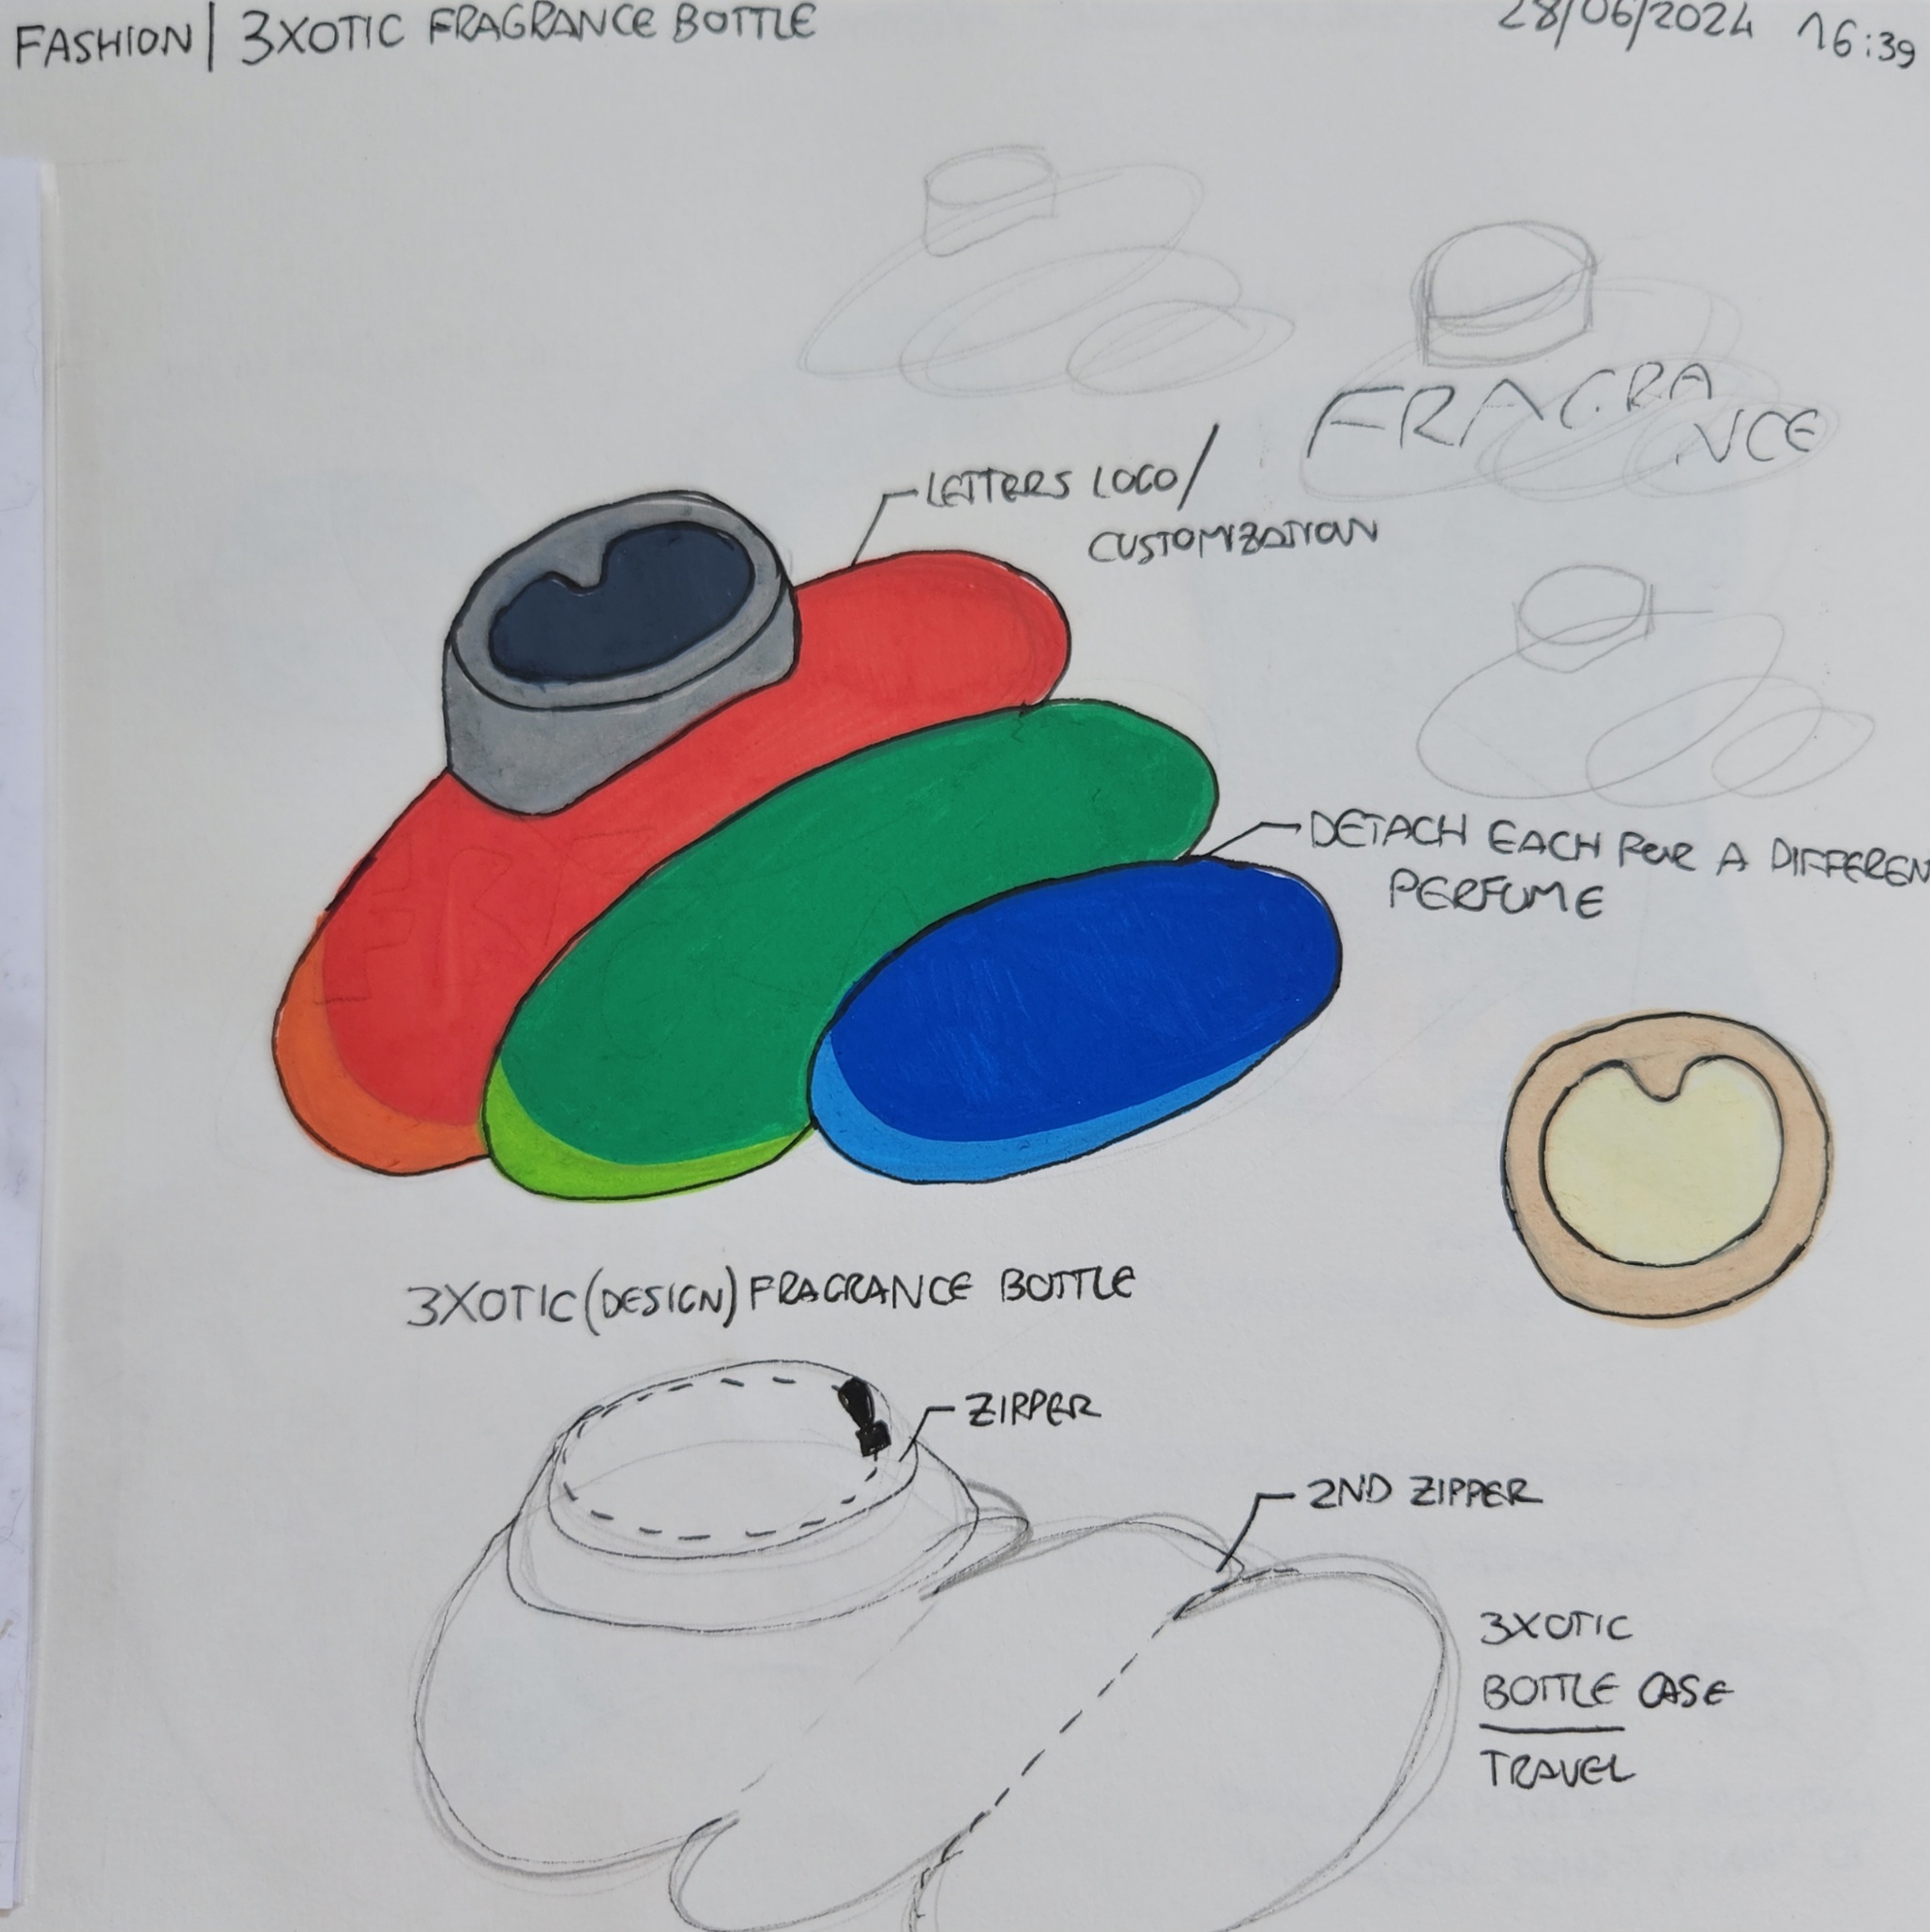 FASHION | 3XOTIC FRAGRANCE BOTTLE
28/06/2024 16:39
FRAGRA
NCE
LETTERS LOGO/
CUSTOMIZATION
DETACH EACH FOR A DIFFEREN
PERFUME
3XOTIC (DESIGN) FRAGRANCE BOTTLE
ZIPPER
2ND ZIPPER
3XOTIC
BOTTLE CASE
TRAVEL